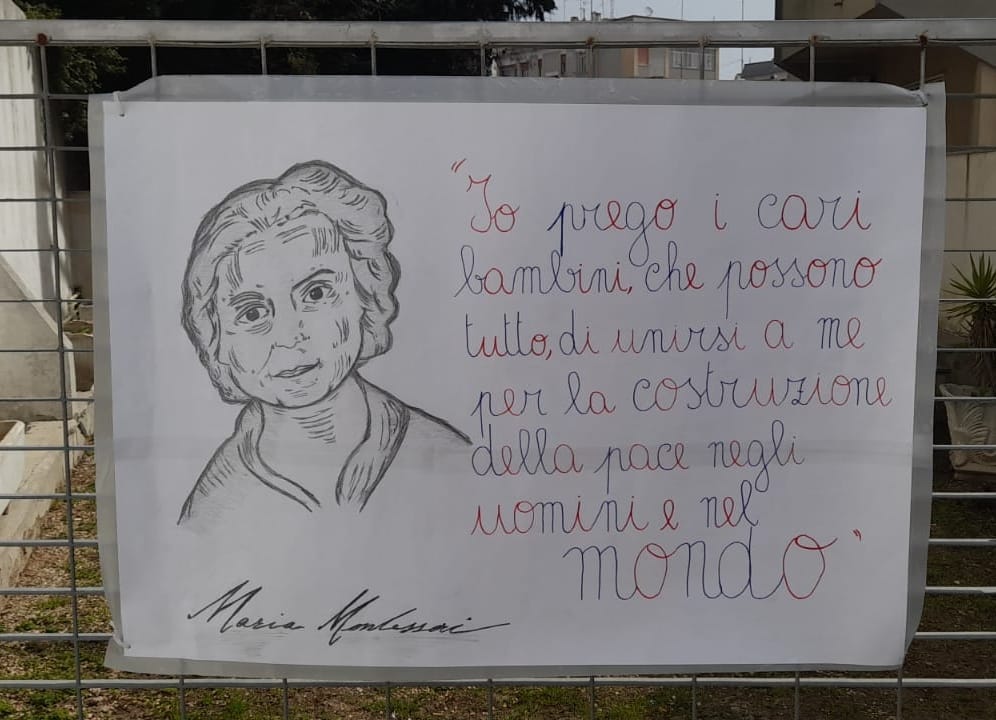 "Io prego i cari
bambini, che possono
tutto, di unirsi a me
per la costruzione
della pace negli
uomini e nel
mondo"
Maria Montessori